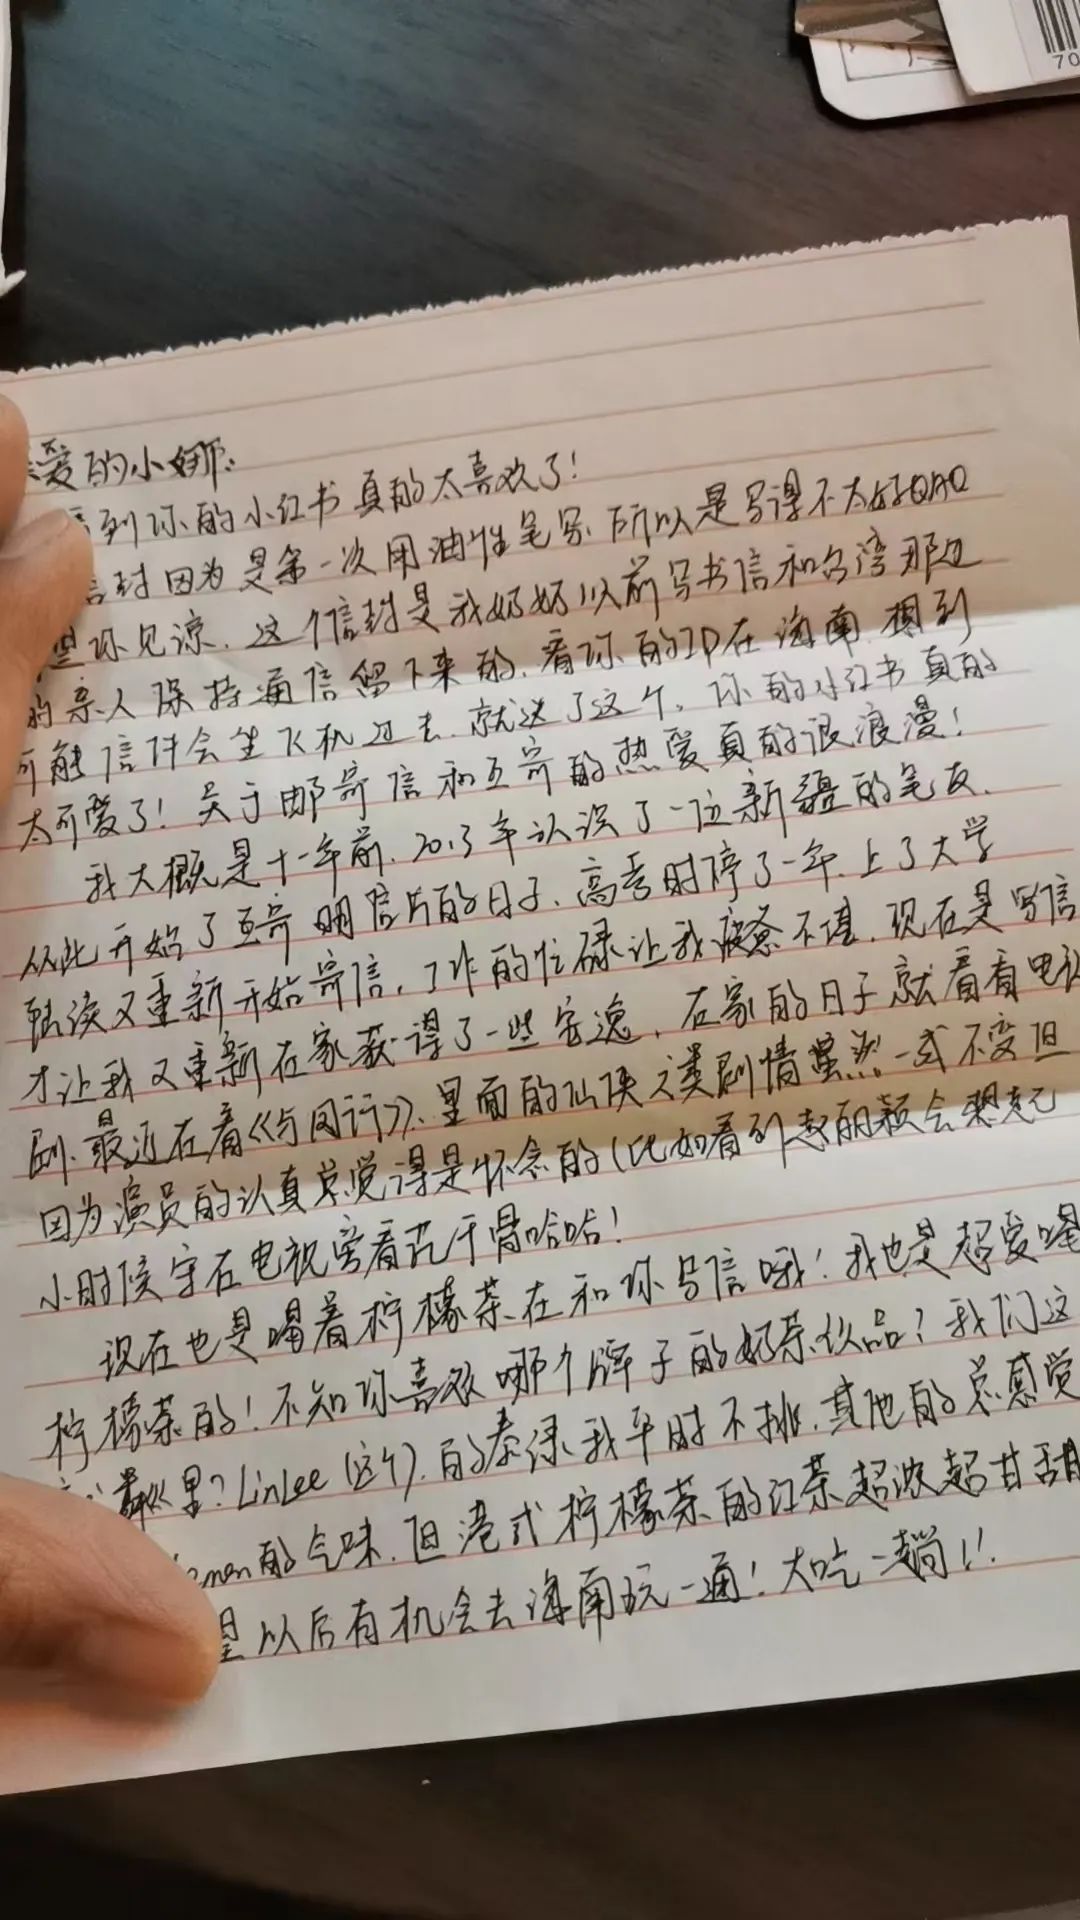 爱的小娜:
到你的小红书真的太喜欢了!
信封因为是第一次用油性笔写所以是写得不太好QAQ
望你见谅.这个信封是我奶奶以前写书信和台湾那边
的亲人保持通信留下来的.看你的IP在海南.想到
可能信件会坐飞机过去.就选了这个。你的小红书真的
太可爱了!关于邮寄信和互寄的热爱真的很浪漫!
我大概是十一年前.2013年认识了一位新疆的笔友.
从此开始了互寄明信片的日子.高考时停了一年.上了大学
陆续又重新开始寄信.工作的忙碌让我疲惫不堪.现在是写信
才让我又重新在家获得了一些安逸.在家的日子就看看电视
剧.最近在看《与凤行》.里面的仙侠之类剧情虽然一成不变但
因为演员的认真总觉得是怀念的(比如看到赵丽颖会想起
小时候守在电视旁看花千骨哈哈!
现在也是喝着柠檬茶在和你写信哦!我也是超爱喝
柠檬茶的!不知你喜欢哪个牌子的奶茶饮品?我们这
里?LinLee(这个).的泰绿我平时不挑.其他的总感觉
的气味.但港式柠檬茶的红茶超浓超甘甜
望以后有机会去海南玩一通!大吃一趟!!